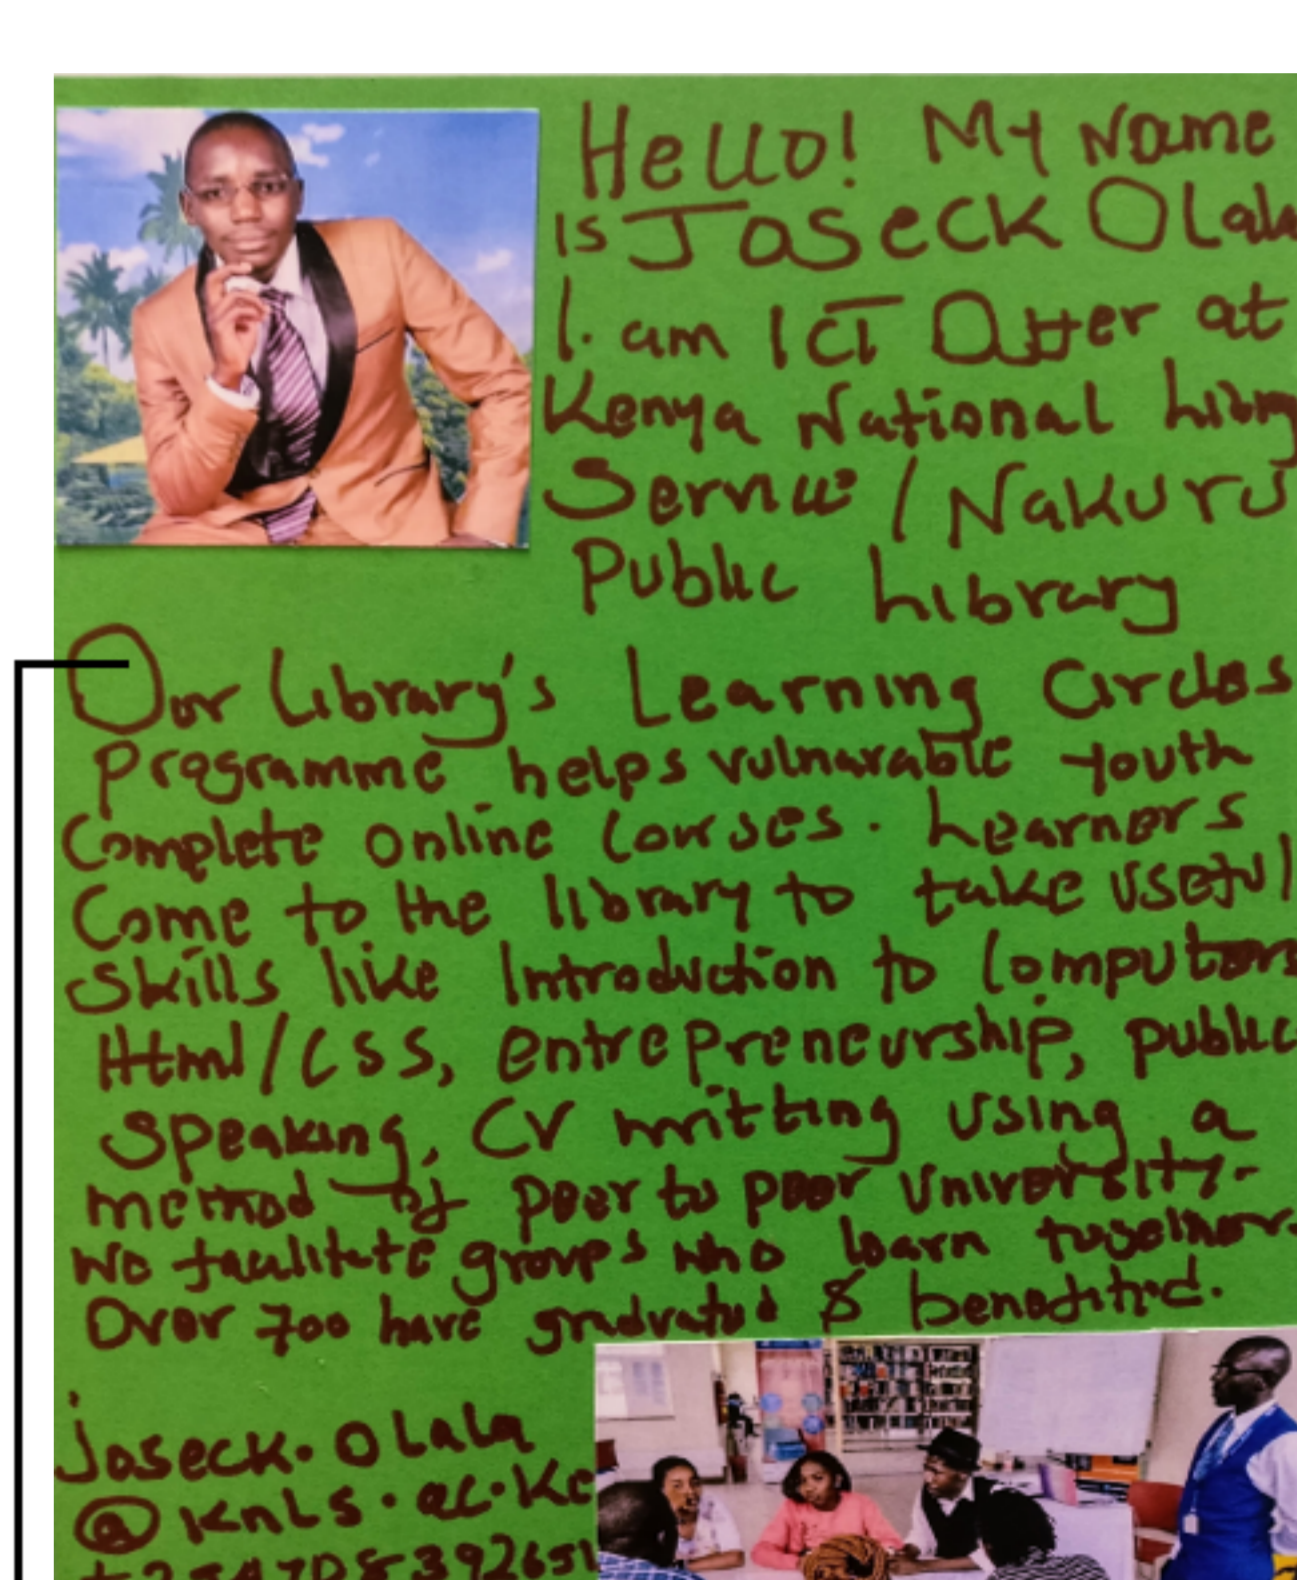 Hello! My Name
is Joseck Olala
I. am ICT Officer at
Kenya National Library
Service / Nakuru
Public Library
Our Library's Learning Circles
Programme helps vulnarable youth
Complete online Courses. Learners
Come to the library to take useful
Skills like Introduction to Computers
Html/CSS, entrepreneurship, public
Speaking, CV writting using a
method of peer to peer University.
We facilitate groups who learn together.
Over 700 have graduated & benefitted.
joseck.olala
@knls.ac.ke